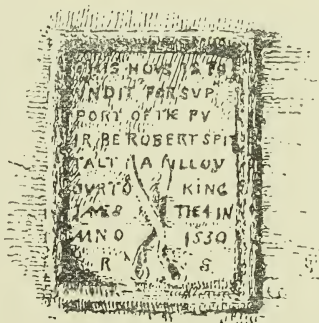 THIS HOVS IS FO
VNDIT FOR SVP
PORT OF THE PV
IR BE ROBERT SPIT
TALT
OVR TO KING
JAMES THE 4 IN
NNO 1530
R S